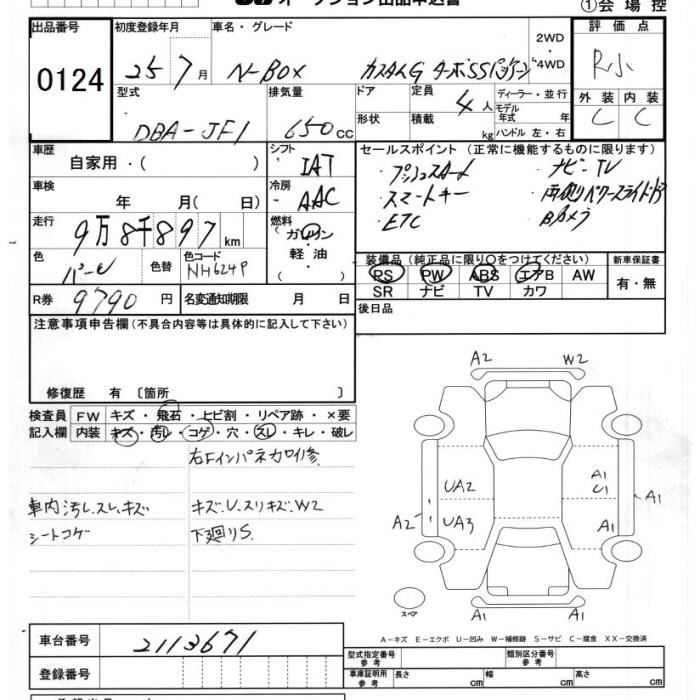 オークション出品申込書
①会場控
出品番号 初度登録年月 車名・グレード 2WD ・4WD 評価点
0124 25 7月 N-BOX カスタムG ターボSSパッケージ R小
型式 排気量 ドア 定員 4人 ディーラー・並行 外装 内装
DBA-JF1 650cc 形状 積載 kg モデル年式 年 ハンドル 左・右 C C
車歴 自家用・( ) シフト IAT セールスポイント(正常に機能するものに限ります)
・プッシュスタート ・ナビ・TV
車検 年 月( 日) 冷房 AAC ・スマートキー ・両側パワースライドドア
走行 9万8千897km 燃料 ガソリン・軽油・( ) ・ETC ・Bカメラ
色 パール 色替 色コード NH624P 装備品(純正品に限り○をつけてください) 新車保証書
PS PW ABS エアB AW 有・無
SR ナビ TV カワ
R券 9790円 名変通知期限 月 日 後日品
注意事項申告欄(不具合内容等は具体的に記入して下さい)
修復歴 有 〔箇所 〕
検査員 FW キズ・飛石・ヒビ割・リペア跡・×要
記入欄 内装 キズ・汚レ・コゲ・穴・スレ・キレ・破レ
右Fインパネカロイ修
車内汚レ.スレ.キズ キズ.U.スリキズ.W2
シートコゲ 下廻りS.
A2 W2
UA2 A1 U1 A1
A2 UA3 A1
A1
スペア
A−キズ E−エクボ U−凹み W−補修跡 S−サビ C−腐食 XX−交換済
車台番号 2113671
型式指定番号 参考 類別区分番号 参考
登録番号 車庫証明用 参考 長さ cm 幅 cm 高さ cm